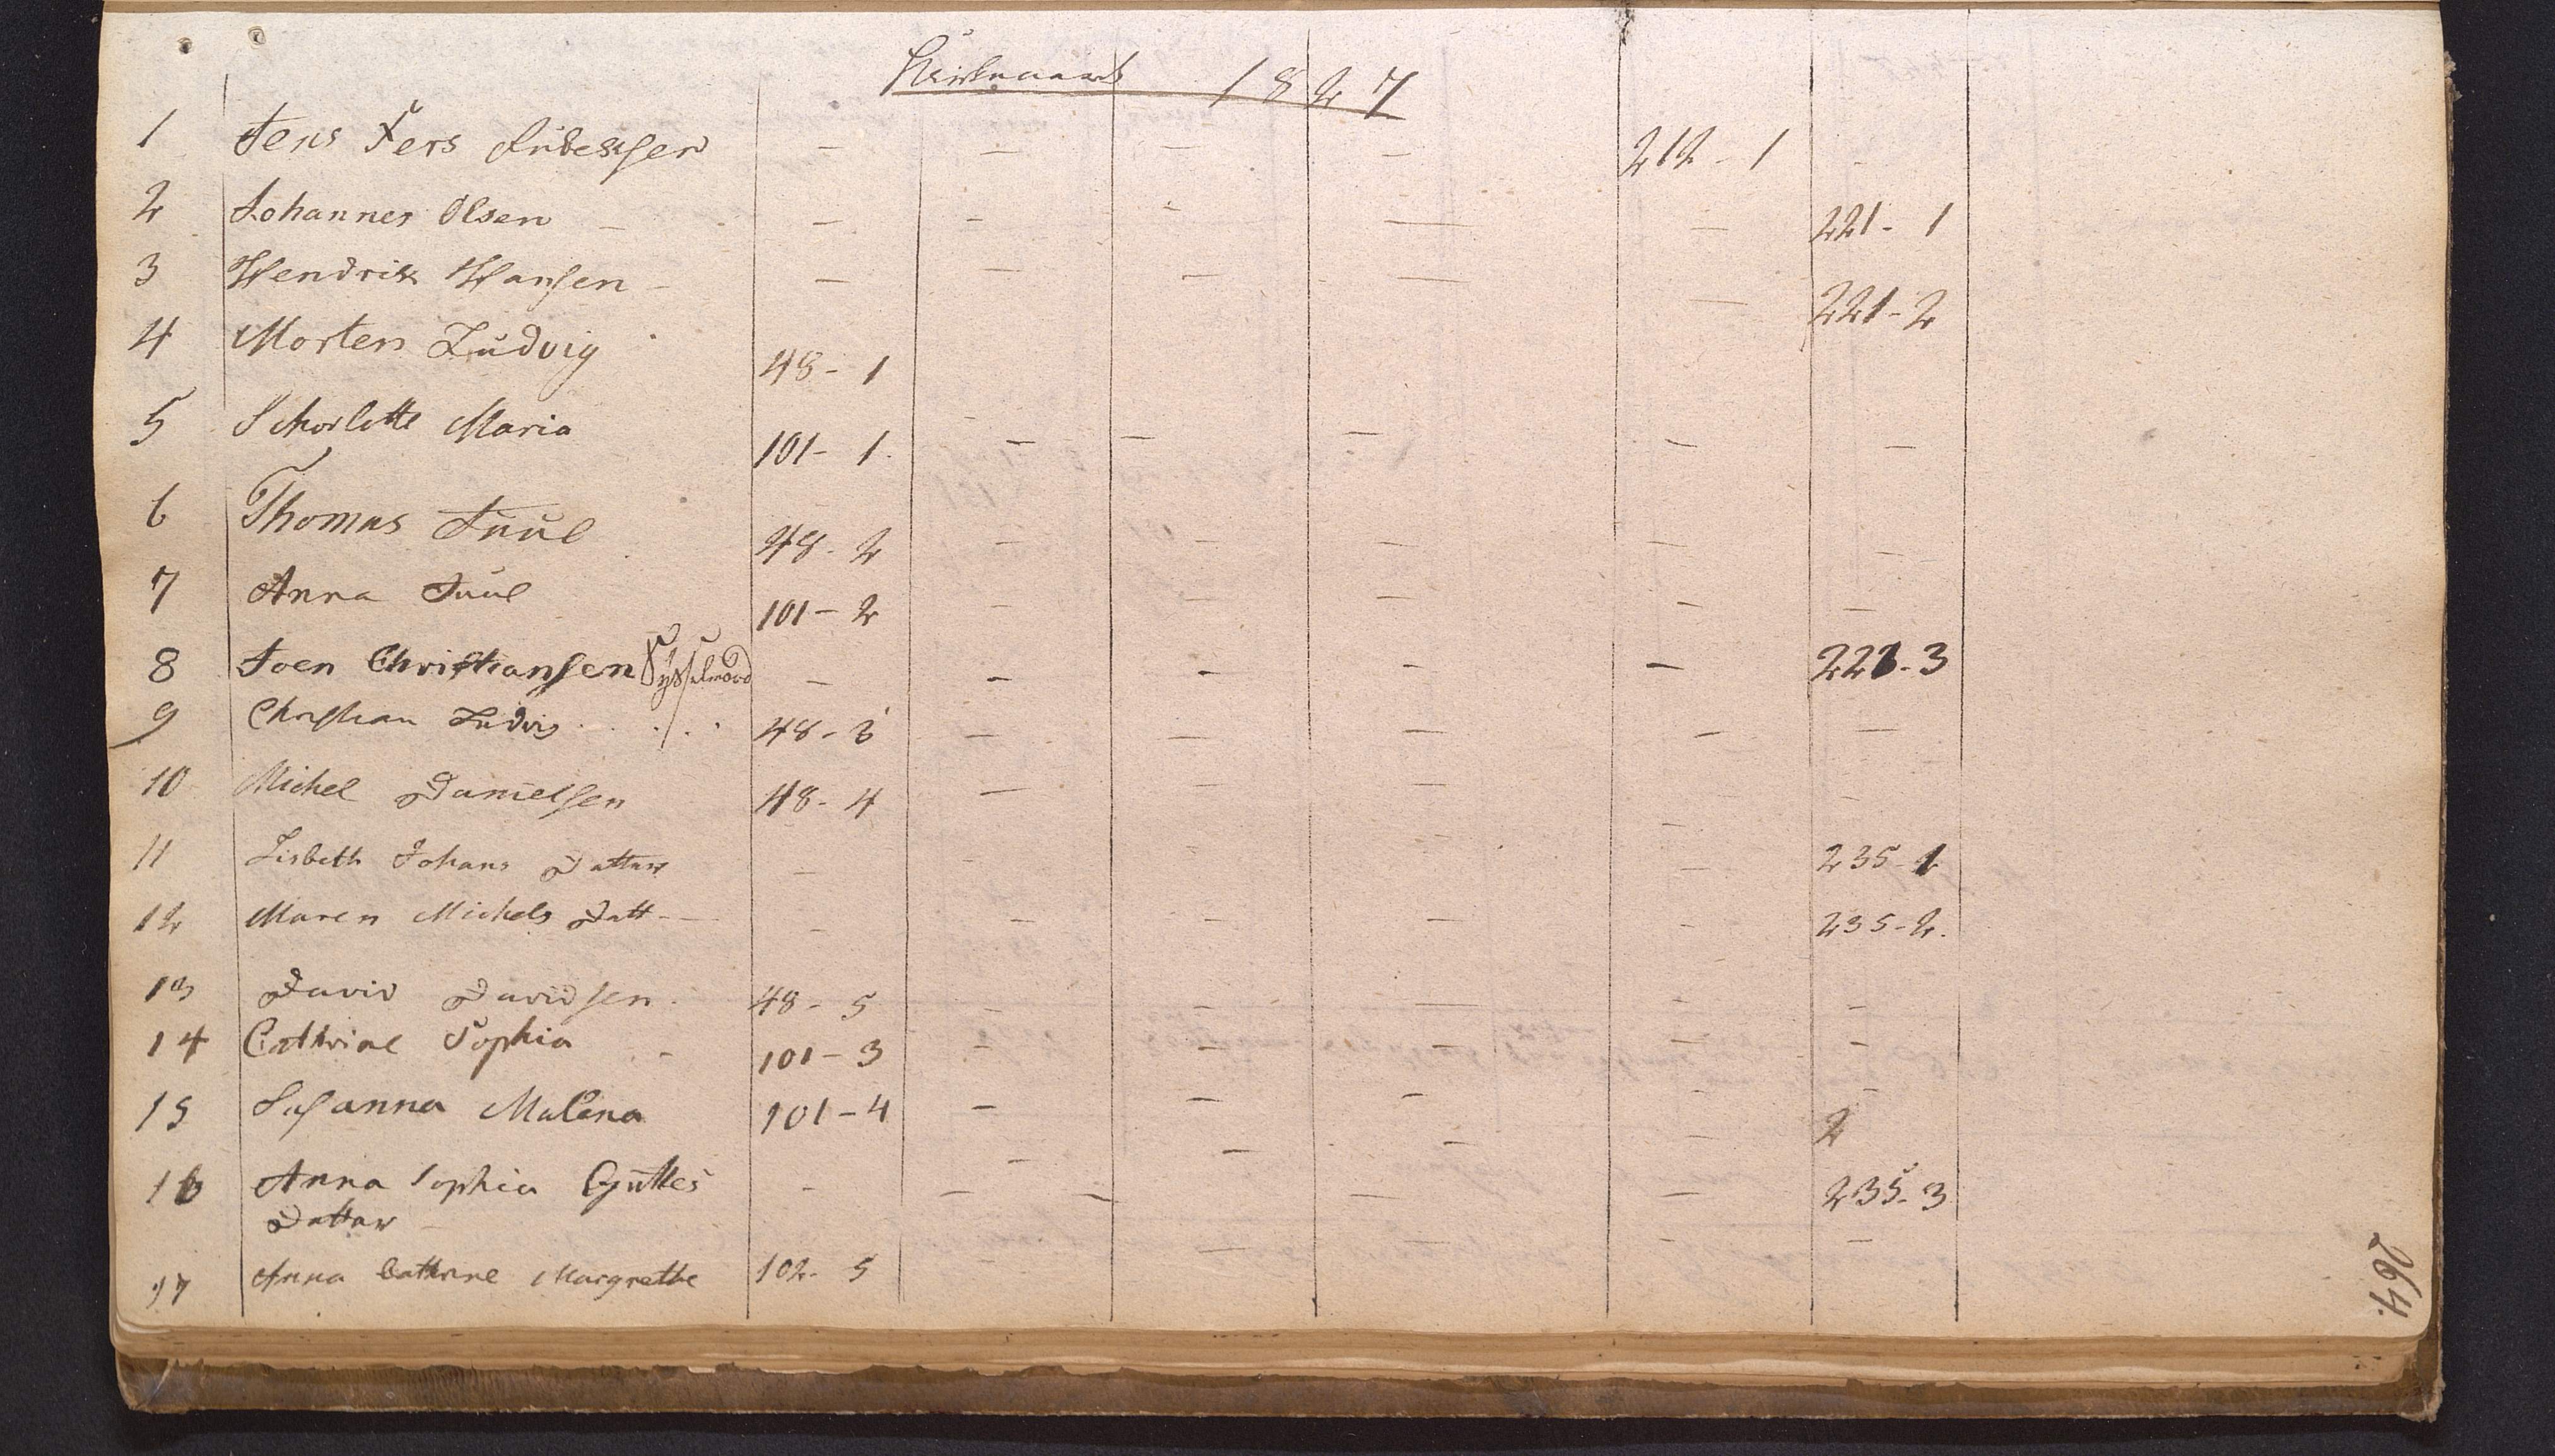 1827
1 Jens 212-1
2 Johannes Olsen 221-1
3 Hendrik Hansen 221-2
4 Morten Ludvig 48-1
5 Schorlotte Maria 101-1.
6 Thomas Juul 48-2
7 Anna Juul 101-2
8 Joen Christiansen 221-3
9 Christian Ludvig 48-3
10 Michel Danielsen 48-4
11 Lisbeth Johans Datter 235-1
12 Maren Michels Datt- 235-2.
13 David Davidsen. 48-5
14 Cathrine Sophia 101-3
15 Susanna Malena 101-4 2
16 Anna Sophia 235-3
Datter
17 Anna Cathrine Margrethe 102-5
264.